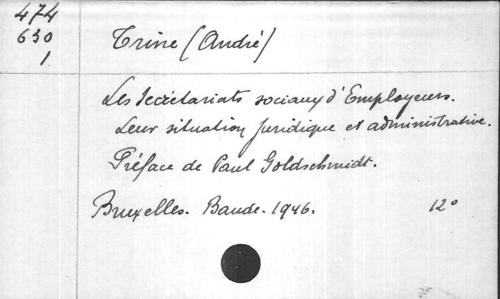 474
630
1
Trine (André)
Les Secrétariats sociaux d'Employeurs.
Leur situation juridique et administrative.
Préface de Paul Goldschmidt.
Bruxelles. Baude. 1946. 12°